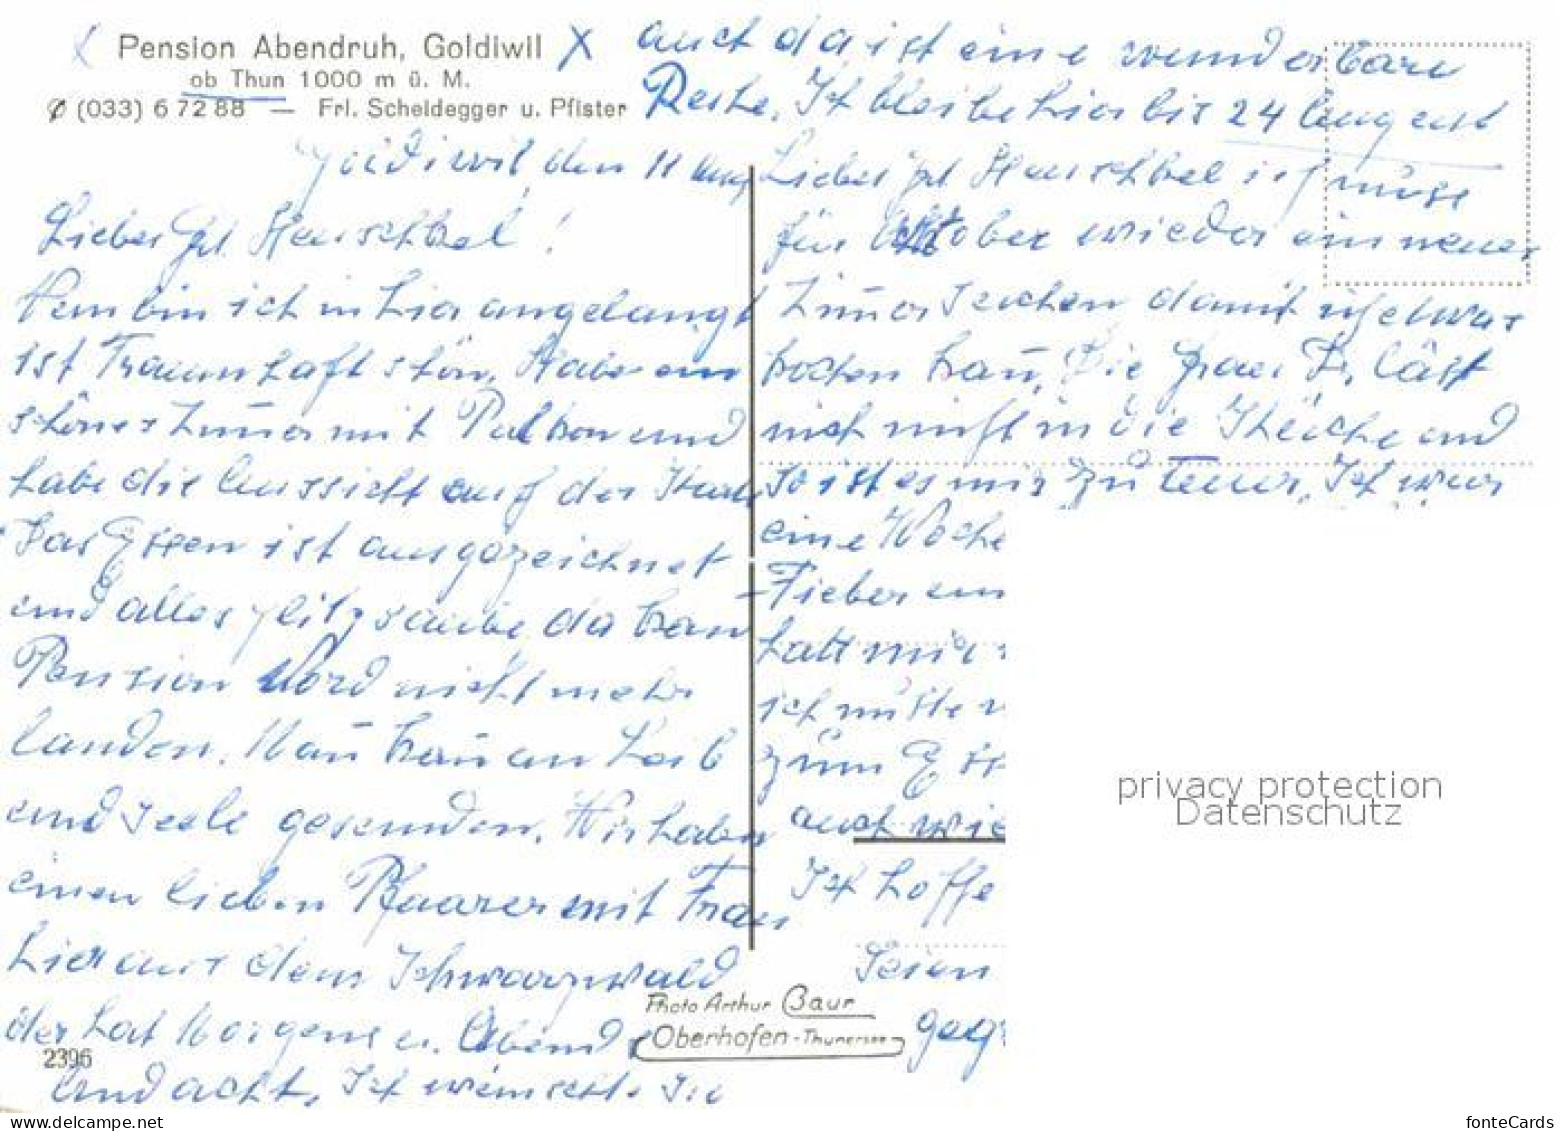 Pension Abendruh, Goldiwil X
ob Thun 1000 m ü. M.
(033) 6 72 88 — Frl. Scheidegger u. Pfister
Goldiwil den 11 Aug
Lieber !
Nun bin ich in hier angelangt
ist Traumhaft schön, Habe ein
schönes Zimmer mit Palkon und
habe die Aussicht auf der
Das Essen ist ausgezeichnet
und alles plitzsaube da kan
Pension Nord nicht mehr
landen. Man kan an Leib
und Seele gesunden. Wir haben
einen lieben Pfaarer mit Frau
hier aus dem Schwarzwald
der hat Morgens u. Abend
Andacht. Ich wünschte Sie
auch da ist eine wunderbare
Ich bleibe hier bis 24 August
Lieber ich müss
für Oktober wieder ein neues
Zimer suchen damit ich etwas
kochen kan. Die Frau läst
mich nicht in die Küche und
so ist es mir zu teuer. Ich war
eine Woche
Fieber
hatt mir
ich müste
zum
auch wie
Ich hoffe
Seien
geg
Photo Arthur Baur
Oberhofen - Thunersee
2396
privacy protection
Datenschutz
www.delcampe.net
fonteCards